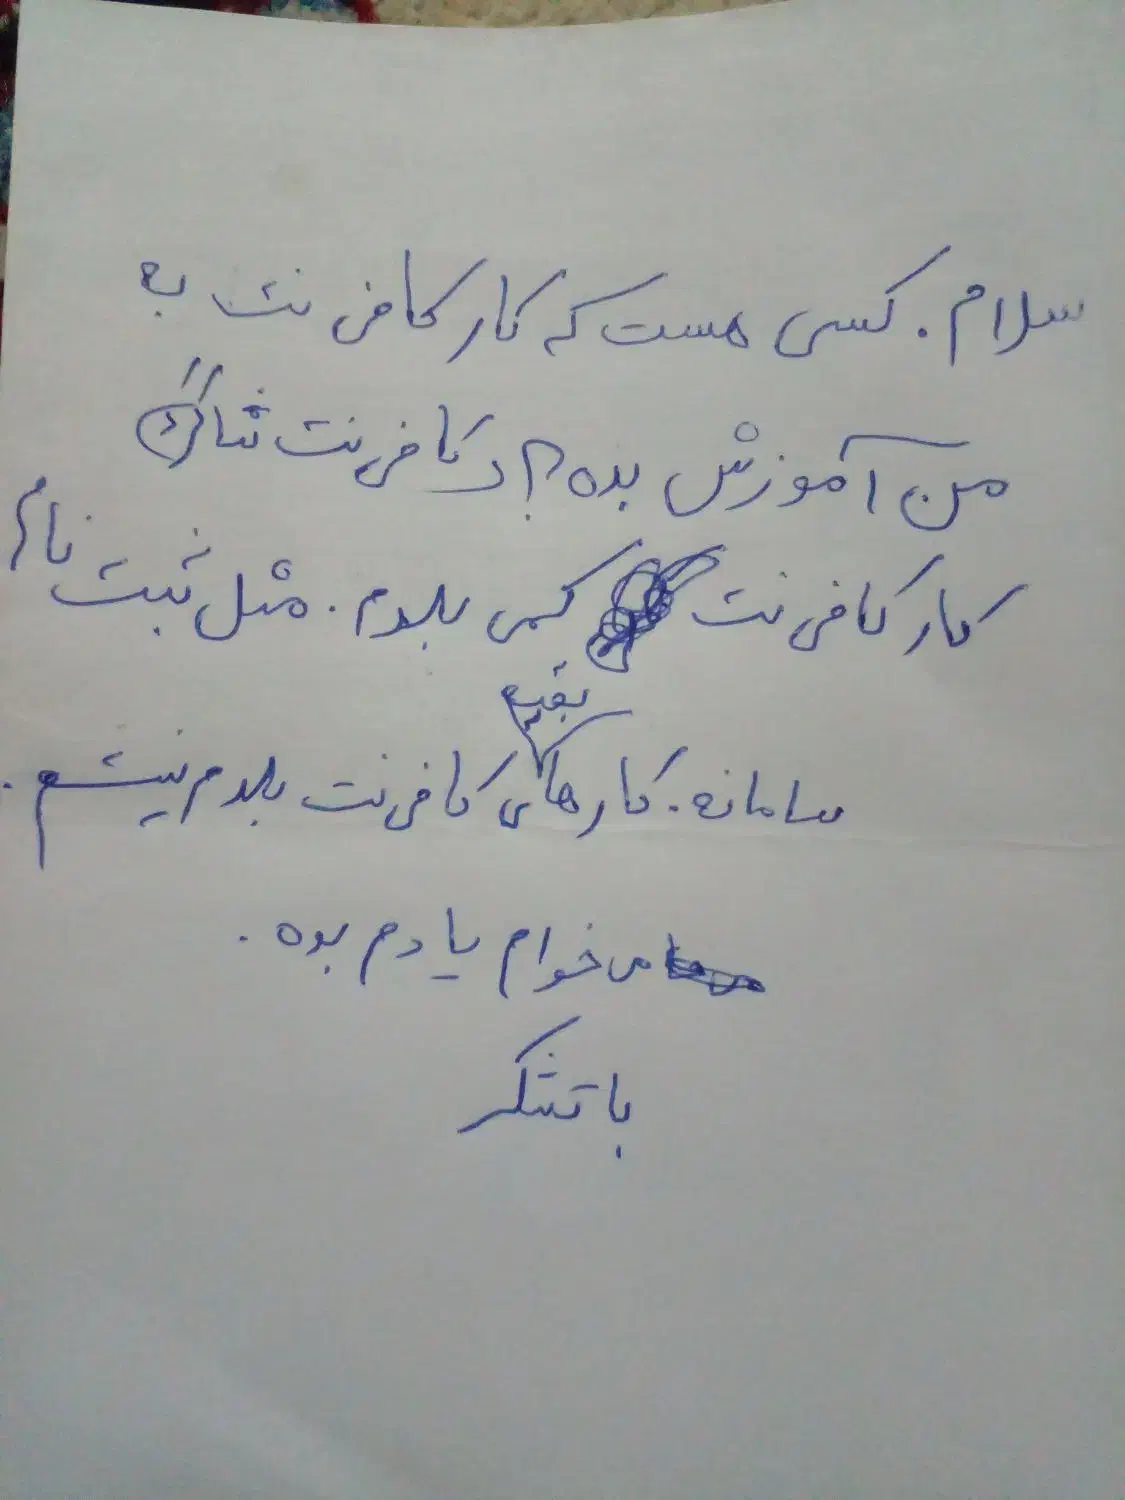 سلام. کسی هست که کار کافی نت به
من آموزش بده؟ کافی نت
کار کافی نت کمی بلدم. مثل ثبت نام
سامانه. بقیه کارهای کافی نت بلدم نیستم.
می خوام یادم بده.
با تشکر